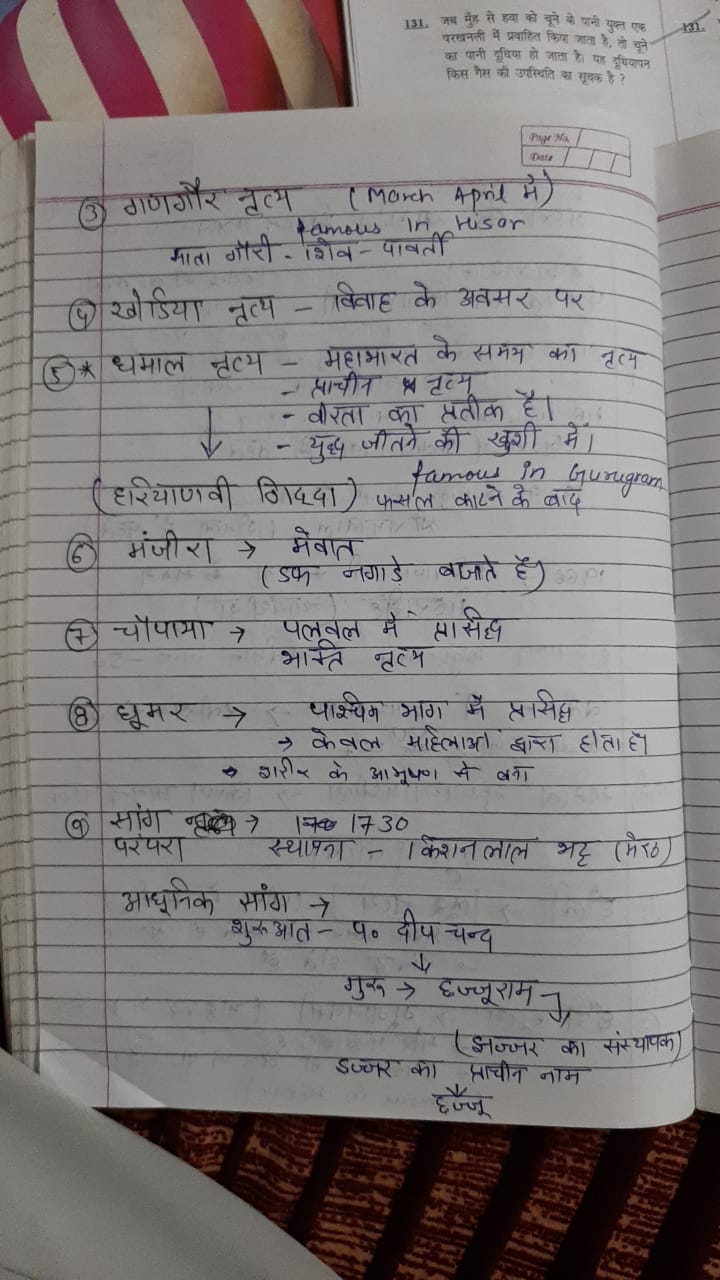 131. जब मुँह से हवा को चूने के पानी युक्त एक
परखनली में प्रवाहित किया जाता है, तो चूने
का पानी दूधिया हो जाता है। यह दूधियापन
किस गैस की उपस्थिति का सूचक है ?
131.
Page No.
Date
③ गणगौर नृत्य (March April में)
famous in Hisar
माता गौरी - शिव - पावर्ती
④ खोडिया नृत्य – विवाह के अवसर पर
⑤* धमाल नृत्य – महाभारत के समय का नृत्य
- प्राचीन नृत्य
- वीरता का प्रतीक है।
- युद्ध जीतने की खुशी में।
famous in Gurugram
(हरियाणवी गिद्दा) फसल काटने के बाद
⑥ मंजीरा → मेवात
(डफ नगाड़े बजाते है)
⑦ चौपाया → पलवल में प्रसिद्ध
भक्ति नृत्य
⑧ घूमर → पश्चिम भाग में प्रसिद्ध
→ केवल महिलाओं द्वारा होता है।
→ शरीर के आभूषण से बना
⑨ सांग → 1730
परंपरा स्थापना – किशनलाल भट्ट (मेरठ)
आधुनिक सांग →
शुरुआत – प० दीप चन्द
↓
गुरु → छज्जूराम
(झज्जर का संस्थापक)
झज्जर का प्राचीन नाम
छज्जू